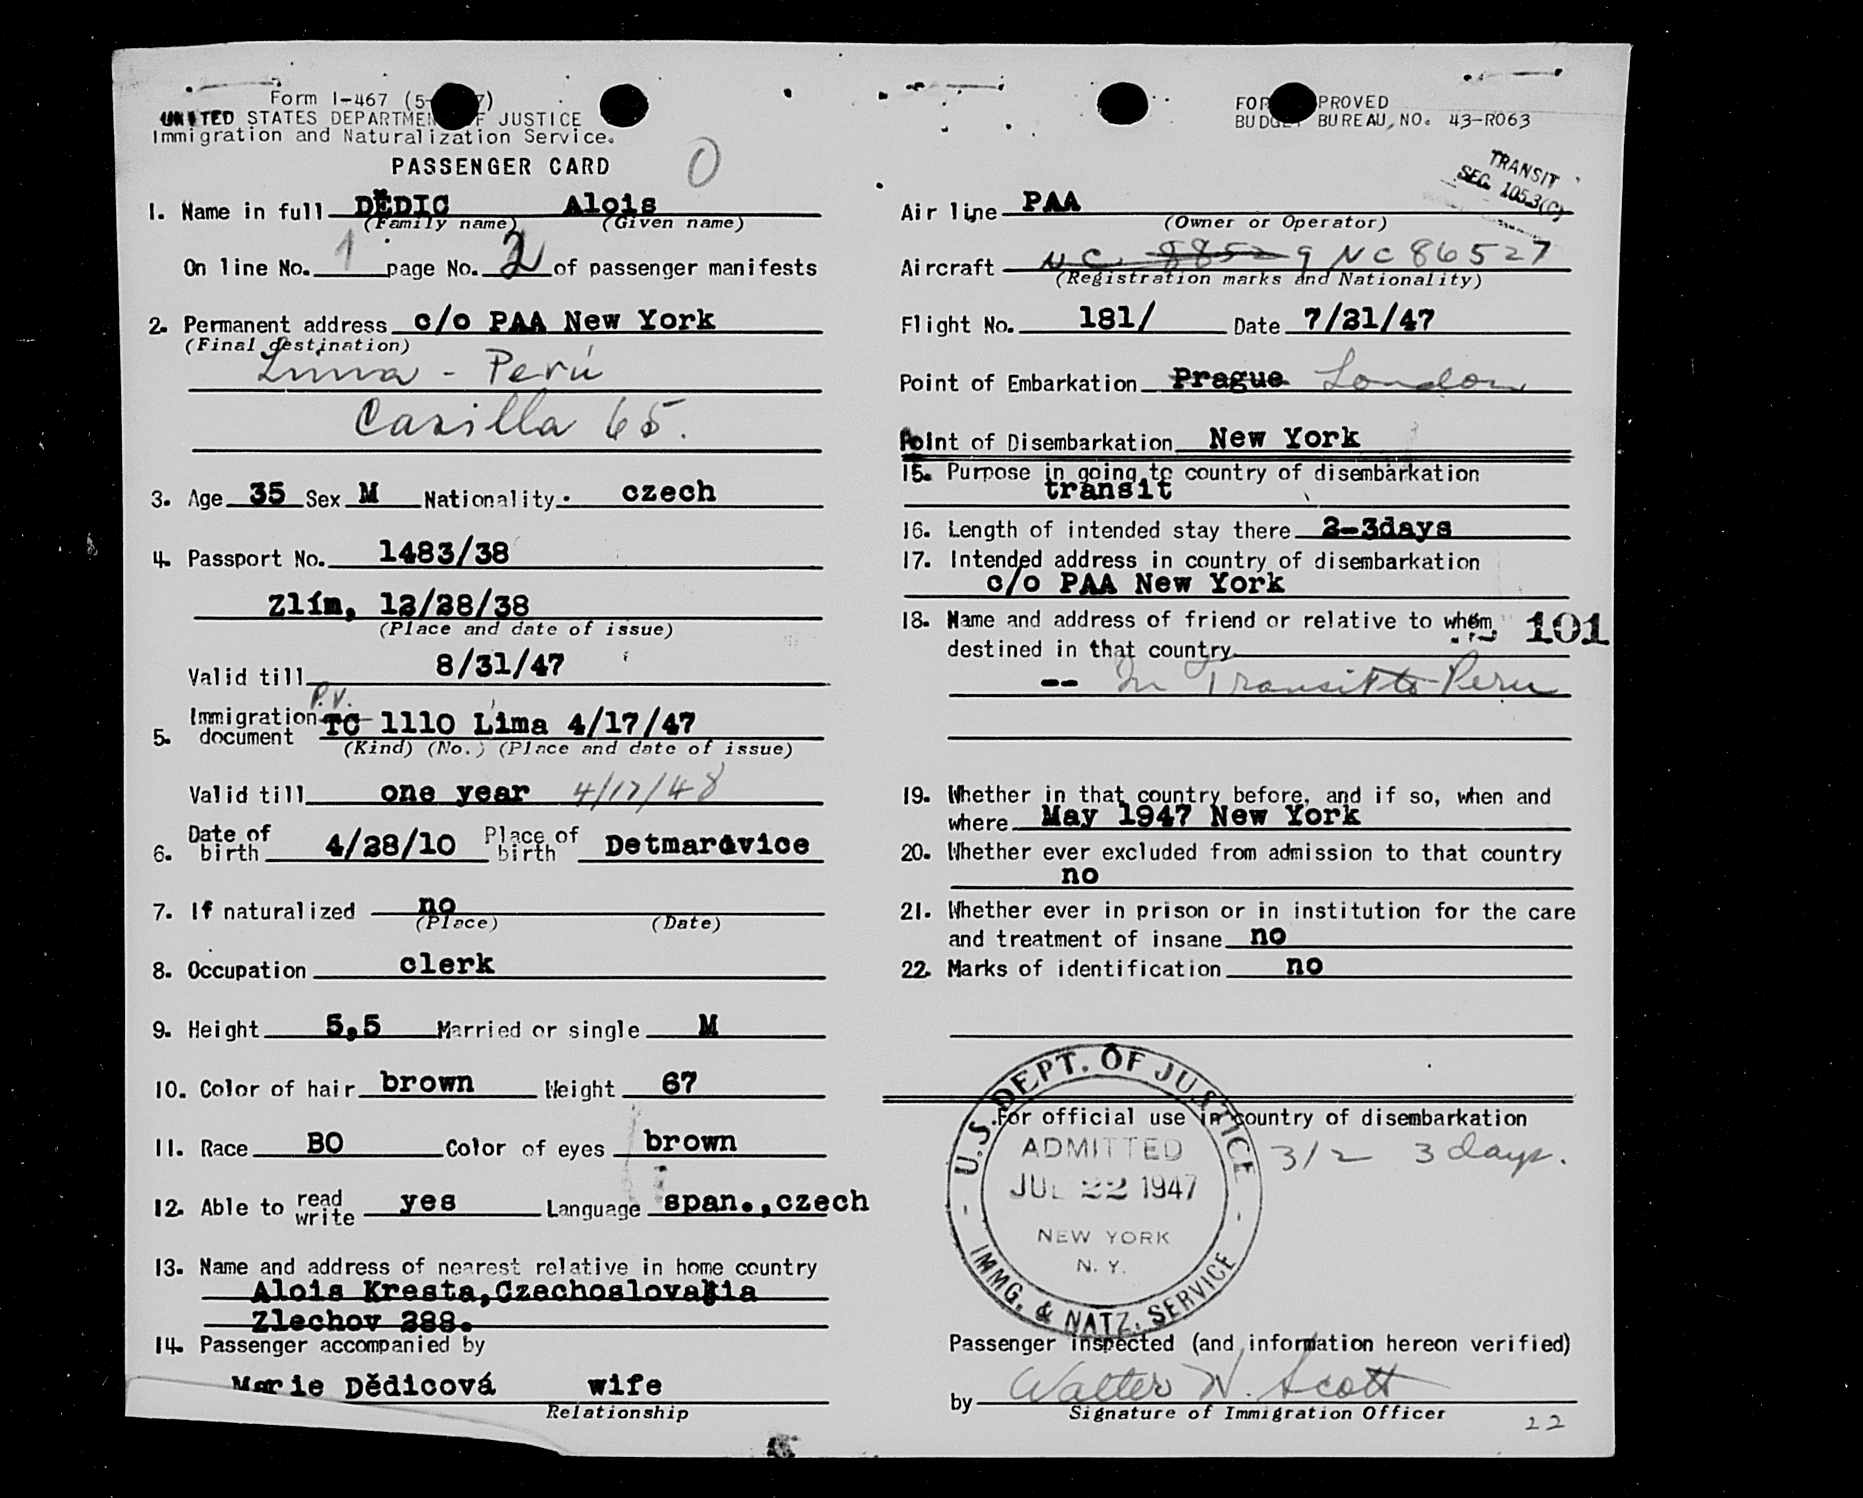 Form I-467 (5- 7)
UNITED STATES DEPARTMENT OF JUSTICE
Immigration and Naturalization Service.
PASSENGER CARD
0
1. Name in full DĚDIC Alois
(Family name) (Given name)
On line No. 1 page No. 2 of passenger manifests
2. Permanent address c/o PAA New York
(Final destination)
Lima - Perú
Casilla 65.
3. Age 35 Sex M Nationality czech
4. Passport No. 1483/38
Zlín, 12/28/38
(Place and date of issue)
Valid till 8/31/47
P.V.
5. Immigration document TC 1110 Lima 4/17/47
(Kind) (No.) (Place and date of issue)
Valid till one year 4/17/48
6. Date of birth 4/28/10 Place of birth Detmarovice
7. If naturalized no
(Place) (Date)
8. Occupation clerk
9. Height 5,5 Married or single M
10. Color of hair brown Weight 67
11. Race BO Color of eyes brown
12. Able to read write yes Language span.,czech
13. Name and address of nearest relative in home country
Alois Kresta,Czechoslovakia
Zlechov 288.
14. Passenger accompanied by
Marie Dědicová wife
Relationship
FORM APPROVED
BUDGET BUREAU NO. 43-R063
TRANSIT
SEC. 105.3(C)
Air line PAA
(Owner or Operator)
Aircraft NC 88529 NC 86527
(Registration marks and Nationality)
Flight No. 181/ Date 7/21/47
Point of Embarkation Prague London
Point of Disembarkation New York
15. Purpose in going to country of disembarkation
transit
16. Length of intended stay there 2-3days
17. Intended address in country of disembarkation
c/o PAA New York
18. Name and address of friend or relative to whom 101
destined in that country
-- In Transit to Peru
19. Whether in that country before, and if so, when and
where May 1947 New York
20. Whether ever excluded from admission to that country
no
21. Whether ever in prison or in institution for the care
and treatment of insane no
22. Marks of identification no
For official use in country of disembarkation
3/2 3 days.
U.S. DEPT. OF JUSTICE
ADMITTED
JUL 22 1947
NEW YORK
N. Y.
IMMG. & NATZ. SERVICE
Passenger inspected (and information hereon verified)
by Walter W. Scott
Signature of Immigration Officer
22